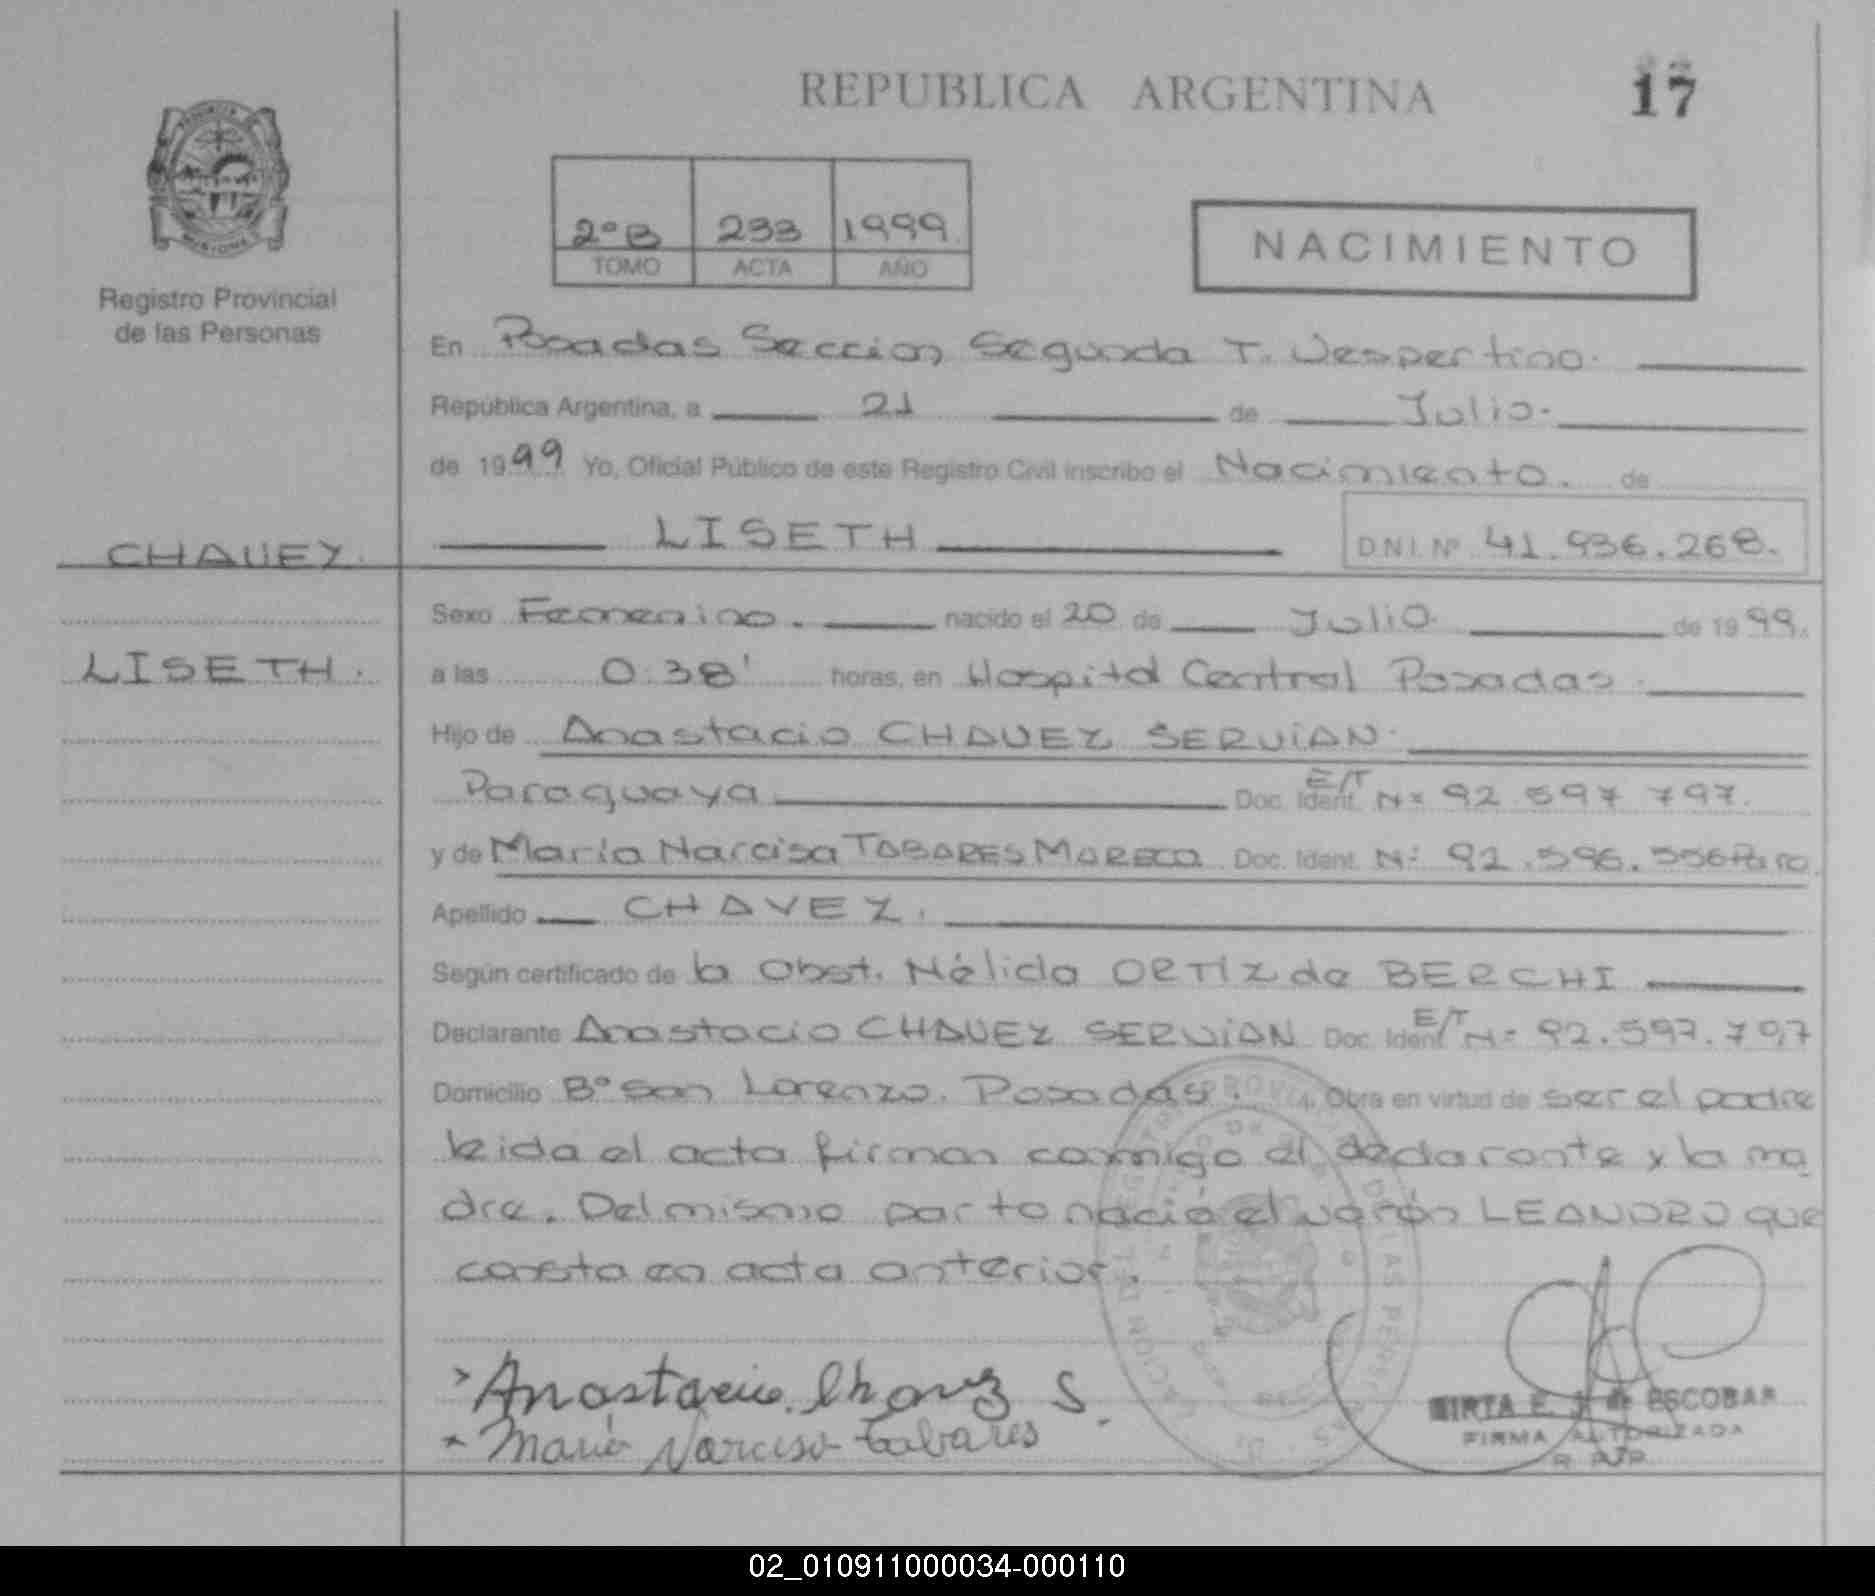 REPUBLICA ARGENTINA
17
2º B 233 1999
TOMO ACTA AÑO
NACIMIENTO
Registro Provincial
de las Personas
En Posadas Seccion Segunda T. Vespertino.
República Argentina, a 21 de Julio.
de 1999 Yo, Oficial Público de este Registro Civil inscribo el Nacimiento. de
CHAVEZ. LISETH D.N.I. Nº 41.936.268.
Sexo Femenino. nacido el 20 de Julio de 1999.
LISETH. a las 0:38' horas, en Hospital Central Posadas.
Hijo de Anastacio CHAVEZ SERVIAN.
Paraguaya Doc. Ident. E/T Nº 92.597.797.
y de María Narcisa TABARES MARECO Doc. Ident. Nº 92.596.556 Para.
Apellido CHAVEZ.
Según certificado de la Obst. Nélida ORTIZ de BERCHI
Declarante Anastacio CHAVEZ SERVIAN Doc. Ident. E/T Nº 92.597.797
Domicilio Bº San Lorenzo. Posadas. Obra en virtud de ser el padre
leida el acta firman conmigo el declarante y la ma
dre. Del mismo parto nació el varón LEANDRO que
consta en acta anterior.
Anastacio Chavez S.
Maria Narcisa Tabares
MIRTA E. J. de ESCOBAR
FIRMA AUTORIZADA
R.P.P.
02_010911000034-000110